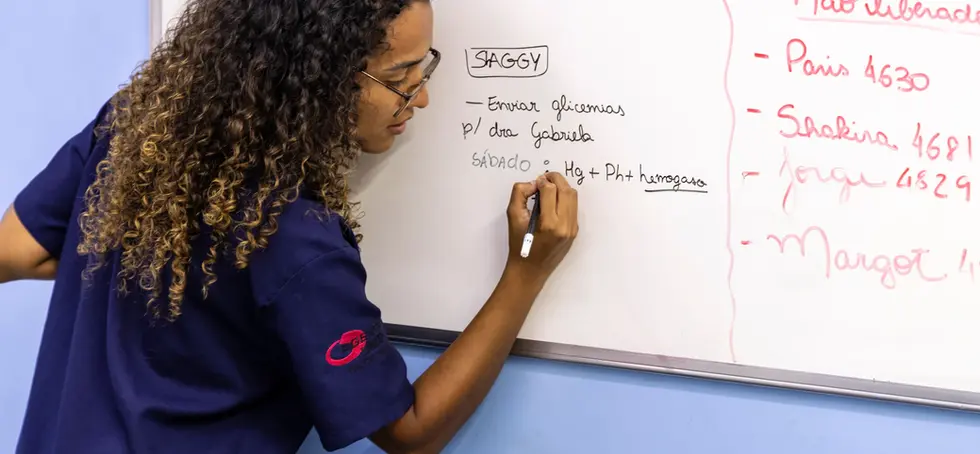 SAGGY
— Enviar glicemias
p/ dra Gabriela
SÁBADO : Hg + Ph + hemogaso
Não liberado
- Paris 4630
- Shakira 4681
- Jorge 4829
- Margot